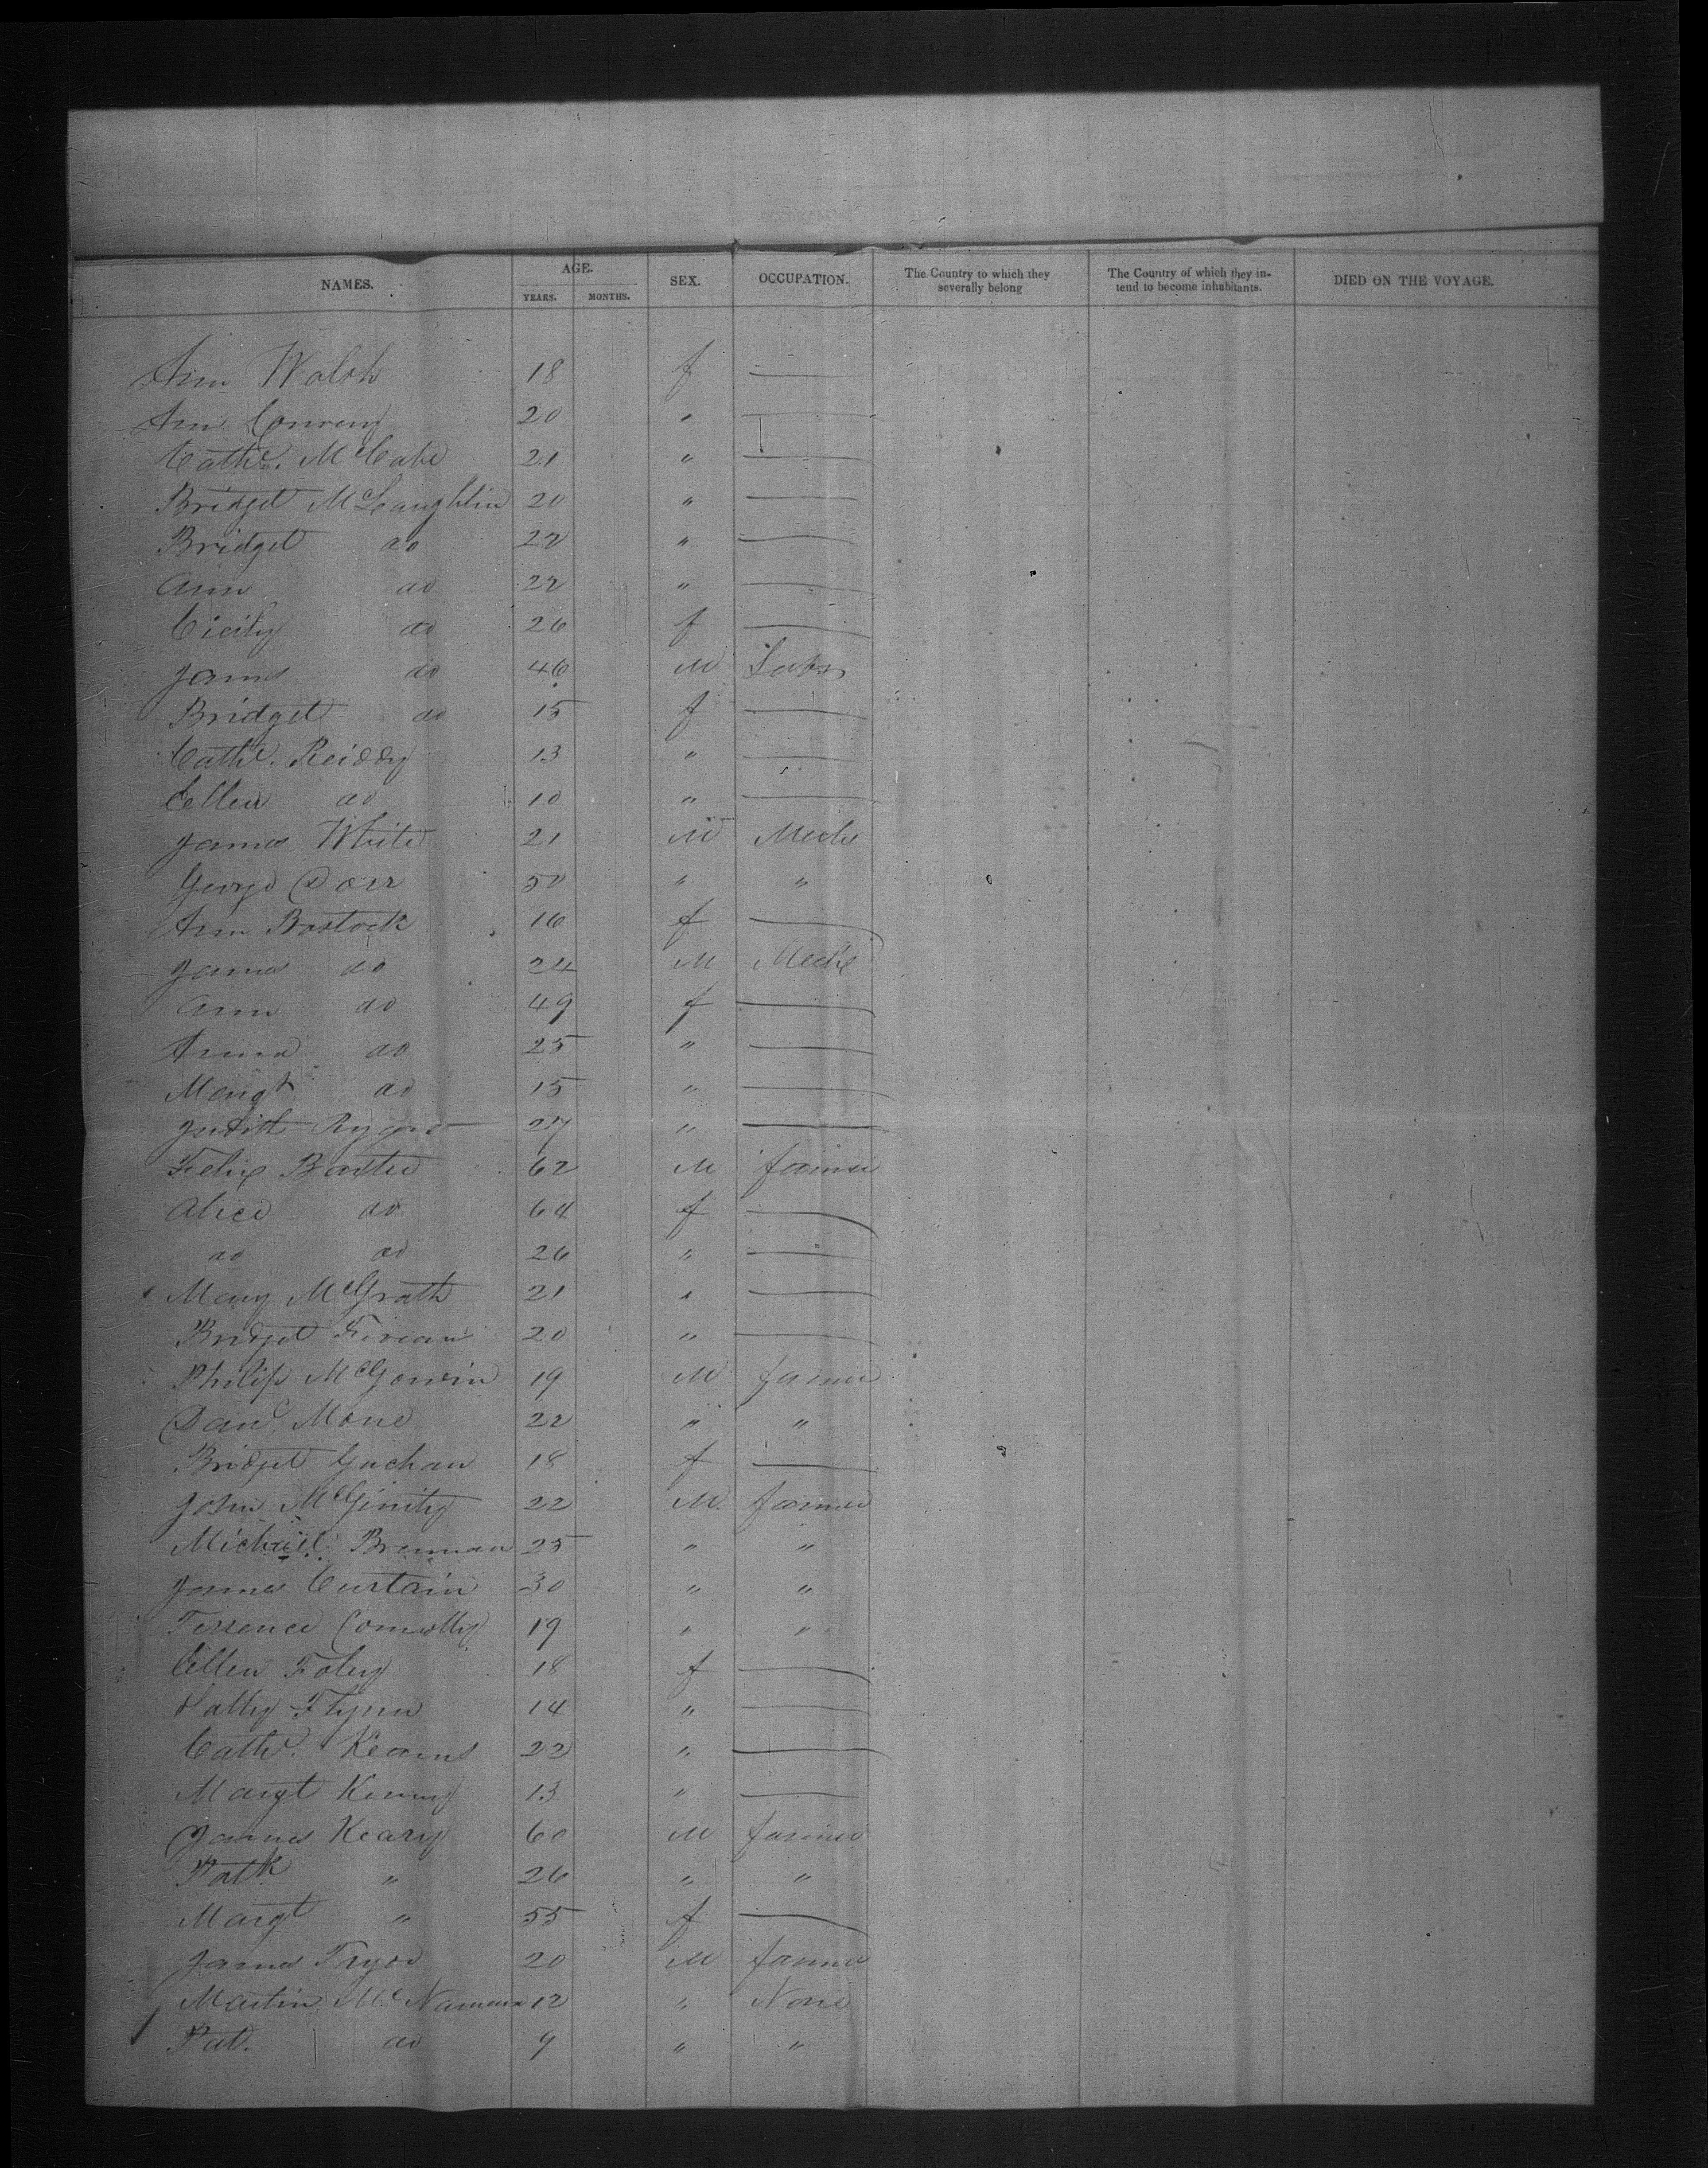 NAMES. AGE. SEX. OCCUPATION. The Country to which they severally belong The Country of which they intend to become inhabitants. DIED ON THE VOYAGE.
YEARS. MONTHS.
Ann Walsh 18 f —
Ann Conroy 20 " —
Cathe. McCabe 21 " —
Bridget McLaughlin 20 " —
Bridget do 22 " —
Ann do 22 " —
Cicily do 26 f —
James do 46 M Labr
Bridget do 15 f —
Cathe. Reiddy 13 " —
Ellen do 10 " —
James White 21 M Meche
George Dorr 50 " "
Ann Bostock 16 f —
James do 24 M Meche
Ann do 49 f —
Anna do 25 " —
Margt do 15 " —
Judith 27 " —
Felix Baxter 62 M farmer
Alice do 64 f —
do do 26 " —
Mary McGrath 21 " —
Bridget 20 " —
Philip McGowin 19 M farmer
Danl Mone 22 " "
Bridget 18 f —
John McGinity 22 M farmer
Michael Brennan 25 " "
James Curtain 30 " "
Terrence Connolly 19 " "
Ellen Foley 18 f —
Sally Flynn 14 " —
Cathe. Kearns 22 " —
Margt Kenny 13 " —
James Keary 60 M farmer
Patk " 26 " "
Margt " 55 f —
James Pryor 20 M farmer
Martin McNamara 12 " None
Pat. do 9 " "